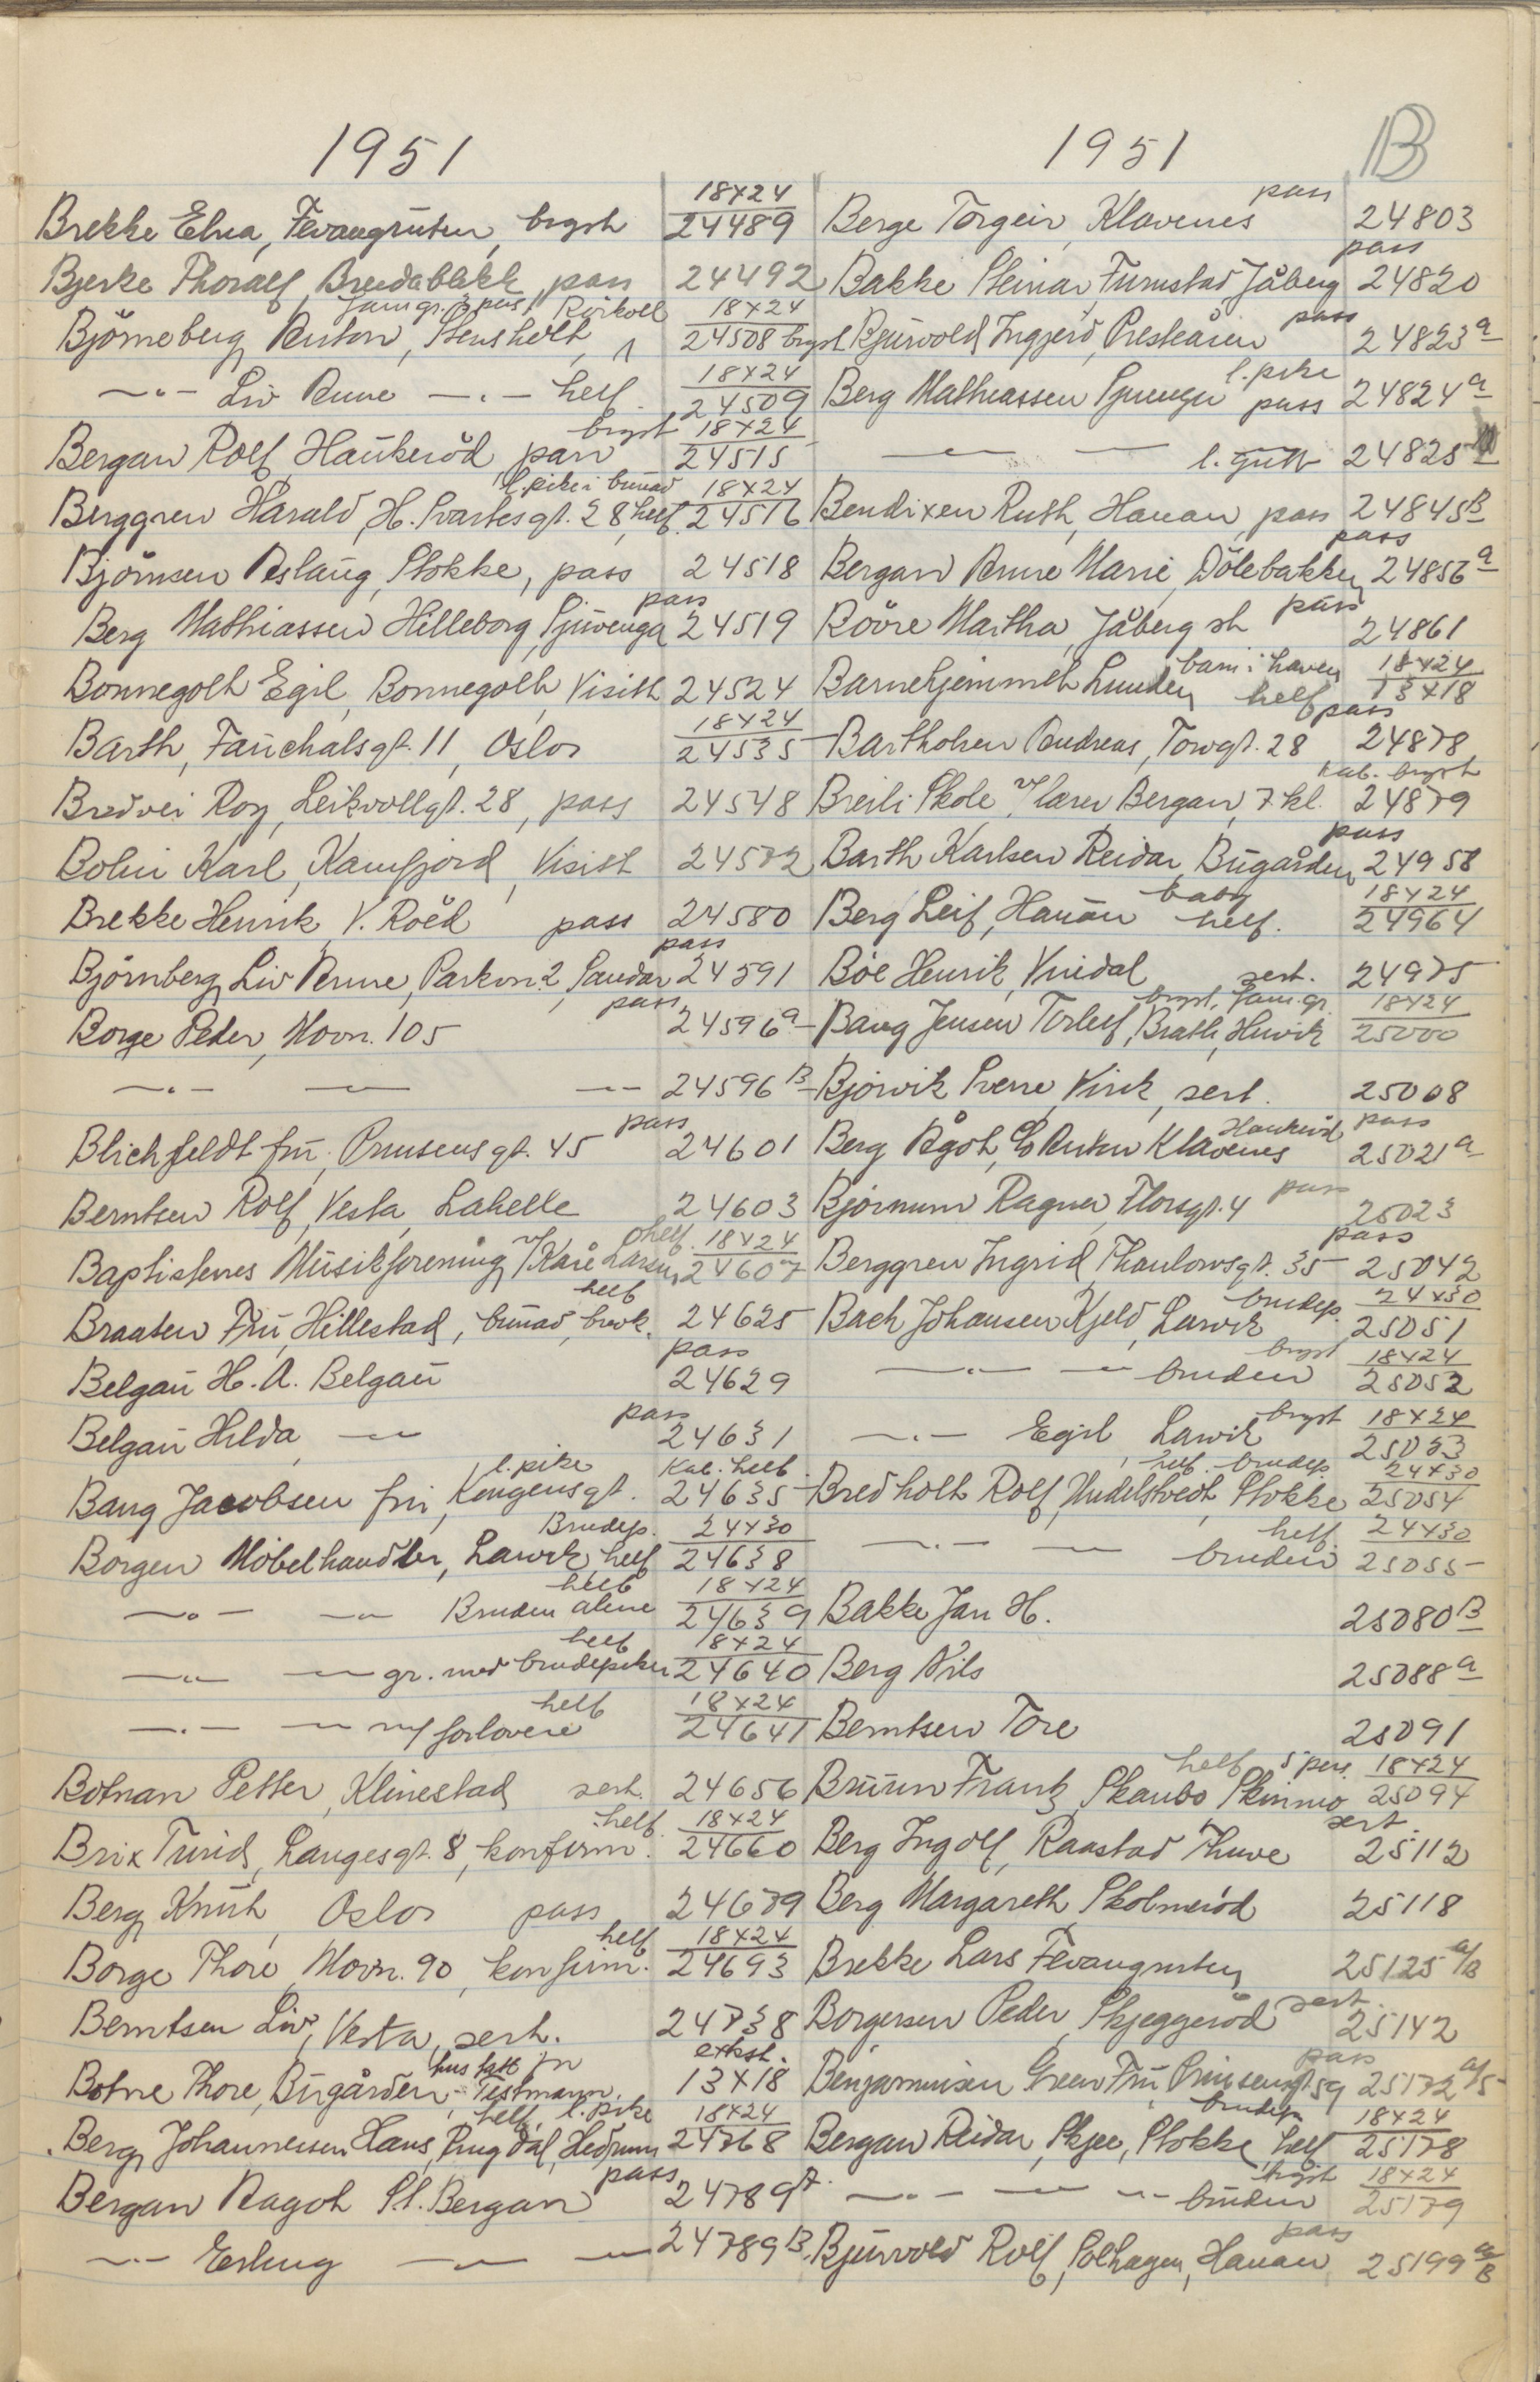 1951
Brekke Elna, Fevangruten, bryst 18x24 24489
Bjerke Thoralf, Breidablikk pass 24492
Björneberg Anton, Stensholt, famgr. 3 pers. Råkoll 18x24 24508 bryst
-"- Liv Anne -"- helf. 18x24 24509
Bergan Rolf, Haukeröd, pass bryst 18x24 24515
Berggren Harald, H. Svartesgt. 28, helf. l. pike i bunad 18x24 24516
Björnsen Aslaug, Stokke, pass 24518
Berg Mathiassen Hilleborg, Sjuvenga pass 24519
Bonnegolt Egil, Bonnegolt, Visitt 24524
Barth, Fauchalsgt. 11, Oslo 18x24 24535
Bredvei Roy, Leikvollgt. 28, pass 24548
Bolin Karl, Kamfjord, Visitt 24572
Brekke Henrik, V. Roed pass 24580
Björnberg Liv Anne, Parkvn. 2, Sandar pass 24591
Borge Peder, Movn. 105 pass 24596 a
-"- — -"- 24596 B
Blichfeldt fru, Prinsensgt. 45 pass 24601
Berntsen Rolf, Vesta, Lahelle 24603
Baptistenes Musikforening v/ Kåre Larsen, helf. 18x24 24607
Braaten Fru, Hillestad, bunad, brek. helf 24625
Belgau H. A. Belgau pass 24629
Belgau Hilda, -"- pass 24631
Bang Jacobsen fru, Kongensgt. l. pike Kab. helf. 24635
Borgen Möbelhandler, Larvik, helf Brudep. 24x30 24638
-"- -"- Bruden alene helf 18x24 24639
-"- -"- gr. med brudepiker helf 18x24 24640
-"- -"- m/ forlovere helf 18x24 24641
Botnan Petter, Klinestad sert. 24656
Brix Turid, Langesgt. 8, konfirm. helf. 18x24 24660
Berg Knut, Oslo pass 24679
Borge Thore, Movn. 90, konfirm. helf 18x24 24693
Berntsen Liv, Vesta, sert. 24738
Botne Thore, Bugården, Testmann, hus tatt ekst. 13x18
Berg Johannessen Hans, Ringdal, Hedrum helf. l. pike 18x24 24768
Bergan Ragoh St. Bergan pass 24789 A.
-"- Erling — -"- 24789 B.
1951 B
Berge Torgeir, Klavenes pass 24803
Bakke Steinar, Furustad, Jåberg pass 24820
Bjurvold Ingjerd, Presteåsen pass 24823 a
Berg Mathiassen Sjuvenga l. pike pass 24824 a
-"- — l. gutt 24825
Bendixen Ruth, Hauan, pass 24845 B
Bergan Anne Marie, Dölebakken pass 24856 a
Rövre Martha, Jåberg st pass 24861
Barnehjemmet Lunden barn i haven helf 18x24 13x18
Bartholsen Andreas, Torvgt. 28 pass 24878
Breili Skole, v/ lærer Bergan, 7. kl. kab. bryst 24879
Barth Karlsen Reidar, Bugården pass 24958
Berg Leif, Hauan baby helf. 18x24 24964
Böe Henrik, Vindal sert. 24975
Bang Jensen Torleif, Bratli, Huvik bryst, fam. gr. 18x24 25000
Bjorvik Sverre, Virik, sert. 25008
Berg Ågot, c/o Anton Klavenes Haukeröd pass 25021 a
Bjørnum Ragna, Thorsgt. 4 pass 25023
Berggren Ingrid, Thaulowsgt. 35 pass 25042
Bach Johansen Kjeld, Larvik brudep. 24x30 25051
-"- -"- bruden bryst 18x24 25052
-"- Egil Larvik bryst 18x24 25053
Bredholt Rolf, Undelstvedt, Stokke helf. brudep. 24x30 25054
-"- — bruden helf. 24x30 25055
Bakke Jan H. 25080 B
Berg Nils 25088 a
Berntsen Tore 25091
Bruun Frantz, Skaubo Skinmo helf 5 pers. 18x24 25094
Berg Ingolf, Raastad Thuve sert. 25112
Berg Margareth Skolmeröd 25118
Brekke Lars Fevangruten 25125 a/B
Borgersen Peder, Skjeggeröd sert. 25142
Benjaminsen Green Fru Prinsensgt. 59 pass 25172 a/5
Bergan Reidar, Skjee, Stokke, helf brudep. 18x24 25178
-"- — -"- bruden bryst 18x24 25179
Bjurvold Rolf, Solhagen, Hauan pass 25199 a/B